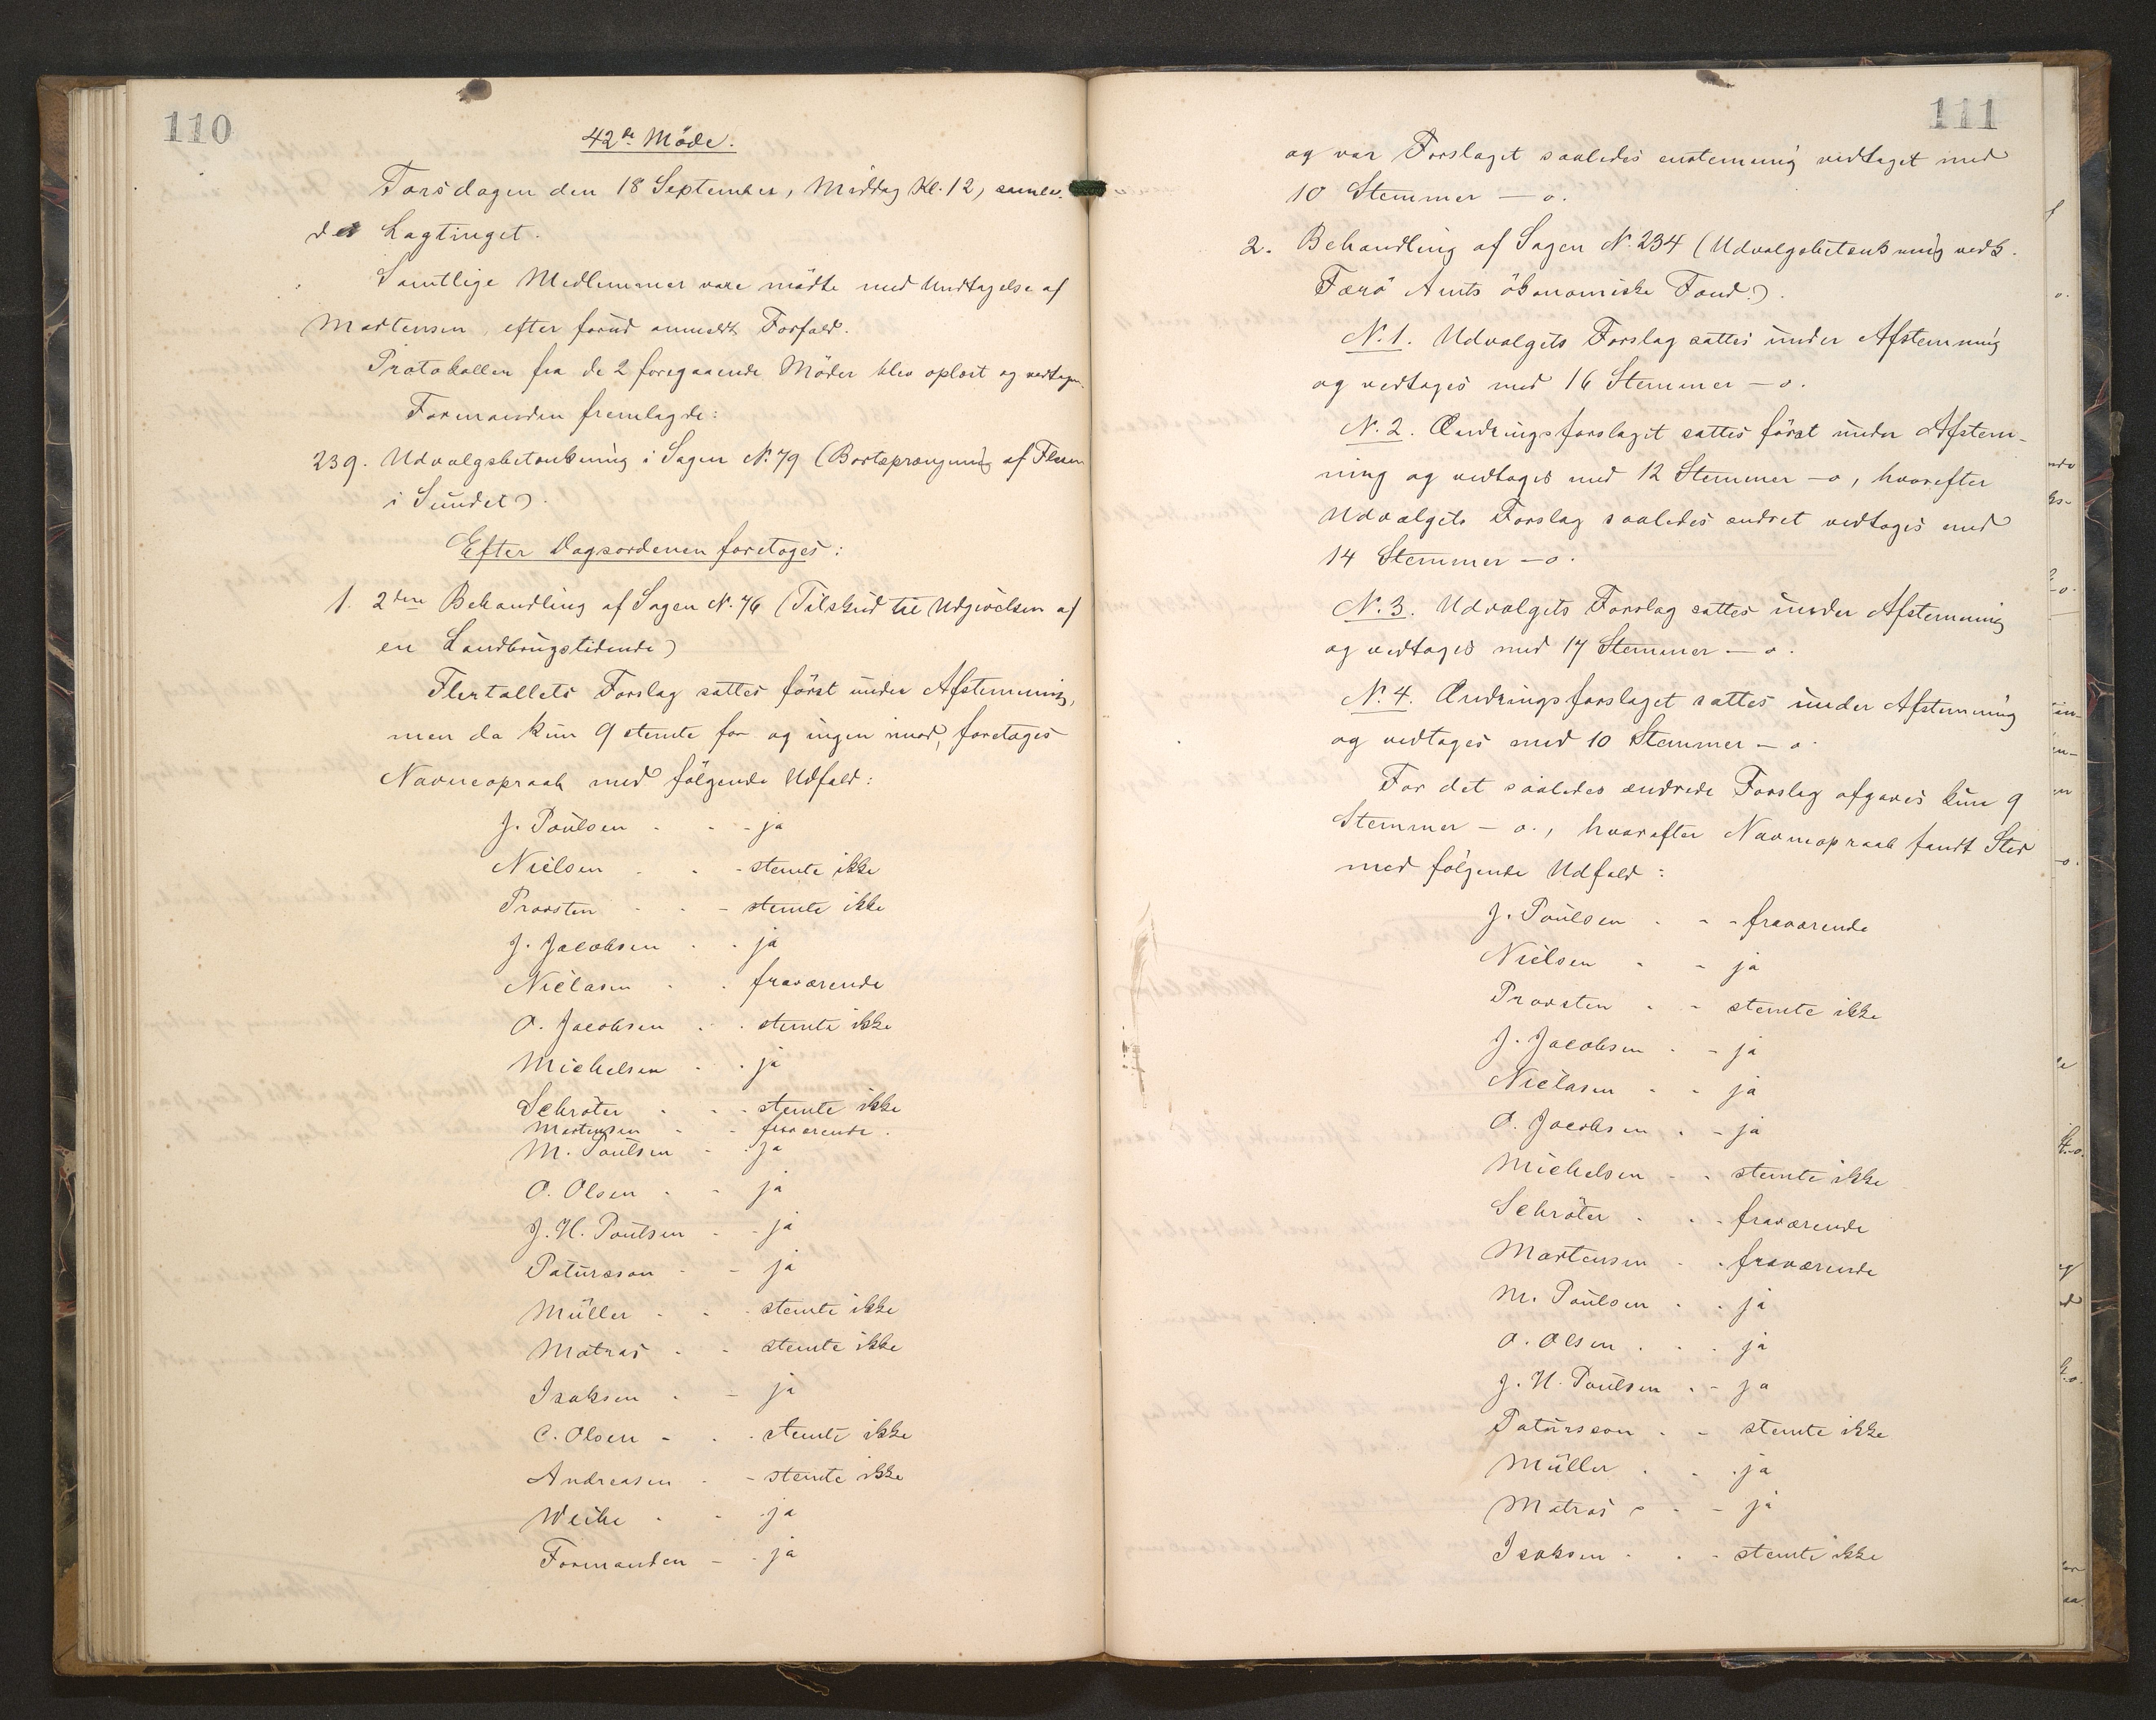 110
42de Möde.
Torsdagen den 18 September, Middag Kl. 12, samle-
des Lagtinget.
Samtlige Medlemmer vare mödte med Undtagelse af
Mortensen, efter forud anmeldt Forfald.
Protokollen fra de 2 foregaaende Möder blev oplæst og vedtagen.
Formanden fremlagde:
239. Udvalgsbetænkning i Sagen N. 79 (Bortsprængning af
i Sundet).
Efter Dagsordenen foretoges:
1. 2den Behandling af Sagen N. 76 (Tilskud til Udgivelsen af
en Landbrugstidende)
Flertallets Forslag sattes först under Afstemning,
men da kun 9 stemte for og ingen imod, foretoges
Navneopraab med fölgende Udfald:
J. Poulsen - - - ja
Nielsen - - - stemte ikke
Provsten - - - stemte ikke
J. Jacobsen - - ja
Niclasen - - fraværende
O. Jacobsen - - stemte ikke
Michelsen - - ja
Schröter - - - stemte ikke
Mortensen - - fraværende.
M. Poulsen - - ja
O. Olsen - - ja
J. H. Poulsen - - ja
Patursson - - ja
Müller - - - stemte ikke
Matras - - stemte ikke
Isaksen - - ja
C. Olsen - - - stemte ikke
Andreasen - - stemte ikke
Weihe - - ja
Formanden - - ja
111
og var Forslaget saaledes enstemmig vedtaget med
10 Stemmer — o.
2. Behandling af Sagen N. 234 (Udvalgsbetænkning vedk.
Færö Amts ökonomiske Fond.).
N. 1. Udvalgets Forslag sattes under Afstemning
og vedtoges med 16 Stemmer — o.
N. 2. Ændringsforslaget sattes först under Afstem-
ning og vedtoges med 12 Stemmer — o, hvorefter
Udvalgets Forslag saaledes ændret vedtoges med
14 Stemmer — o.
N. 3. Udvalgets Forslag sattes under Afstemning
og vedtoges med 17 Stemmer — o.
N. 4. Ændringsforslaget sattes under Afstemning
og vedtoges med 10 Stemmer — o.
For det saaledes ændrede Forslag afgaves kun 9
Stemmer — o., hvorefter Navneopraab fandt Sted
med fölgende Udfald:
J. Poulsen - - - fraværende
Nielsen - - ja
Provsten - - stemte ikke
J. Jacobsen - - ja
Niclasen - - ja
O. Jacobsen - - ja
Michelsen - - stemte ikke
Schröter - - - fraværende
Mortensen - - fraværende
M. Poulsen - - ja
O. Olsen - - - ja
J. H. Poulsen - - ja
Patursson - - stemte ikke
Müller - - - ja
Matras - - - ja
Isaksen - - - stemte ikke